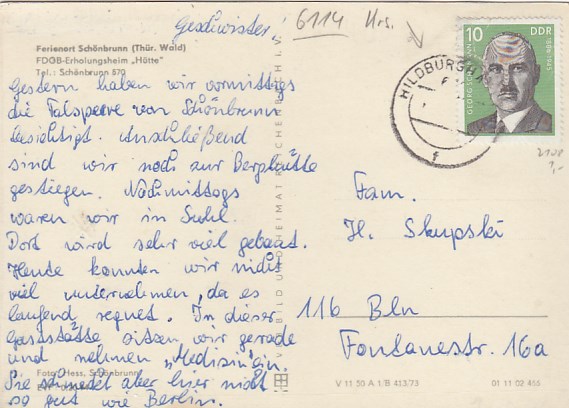 Geschwister!
6114 Hrs.
Ferienort Schönbrunn (Thür. Wald)
FDGB-Erholungsheim „Hütte"
Tel.: Schönbrunn 870
Gestern haben wir vormittags
die Talsperre von Schönbrunn
besichtigt. Anschließend
sind wir noch zur Bergbaude
gestiegen. Nachmittags
waren wir in Suhl.
Dort wird sehr viel gebaut.
Heute konnten wir nicht
viel unternehmen, da es
laufend regnet. In dieser
Gaststätte sitzen wir gerade
und nehmen „Medizin" ein.
Sie schmeckt aber hier nicht
so gut wie Berlin.
Foto: Hess, Schönbrunn
BILD UND HEIMAT REICHENBACH I. V.
10 DDR
GEORG SCHUMANN
1886-1945
HILDBURGHA
f
Fam.
H. Skupski
116 Bln
Fontanestr. 16a
V 11 50 A 1/B 413/73
01 11 02 466